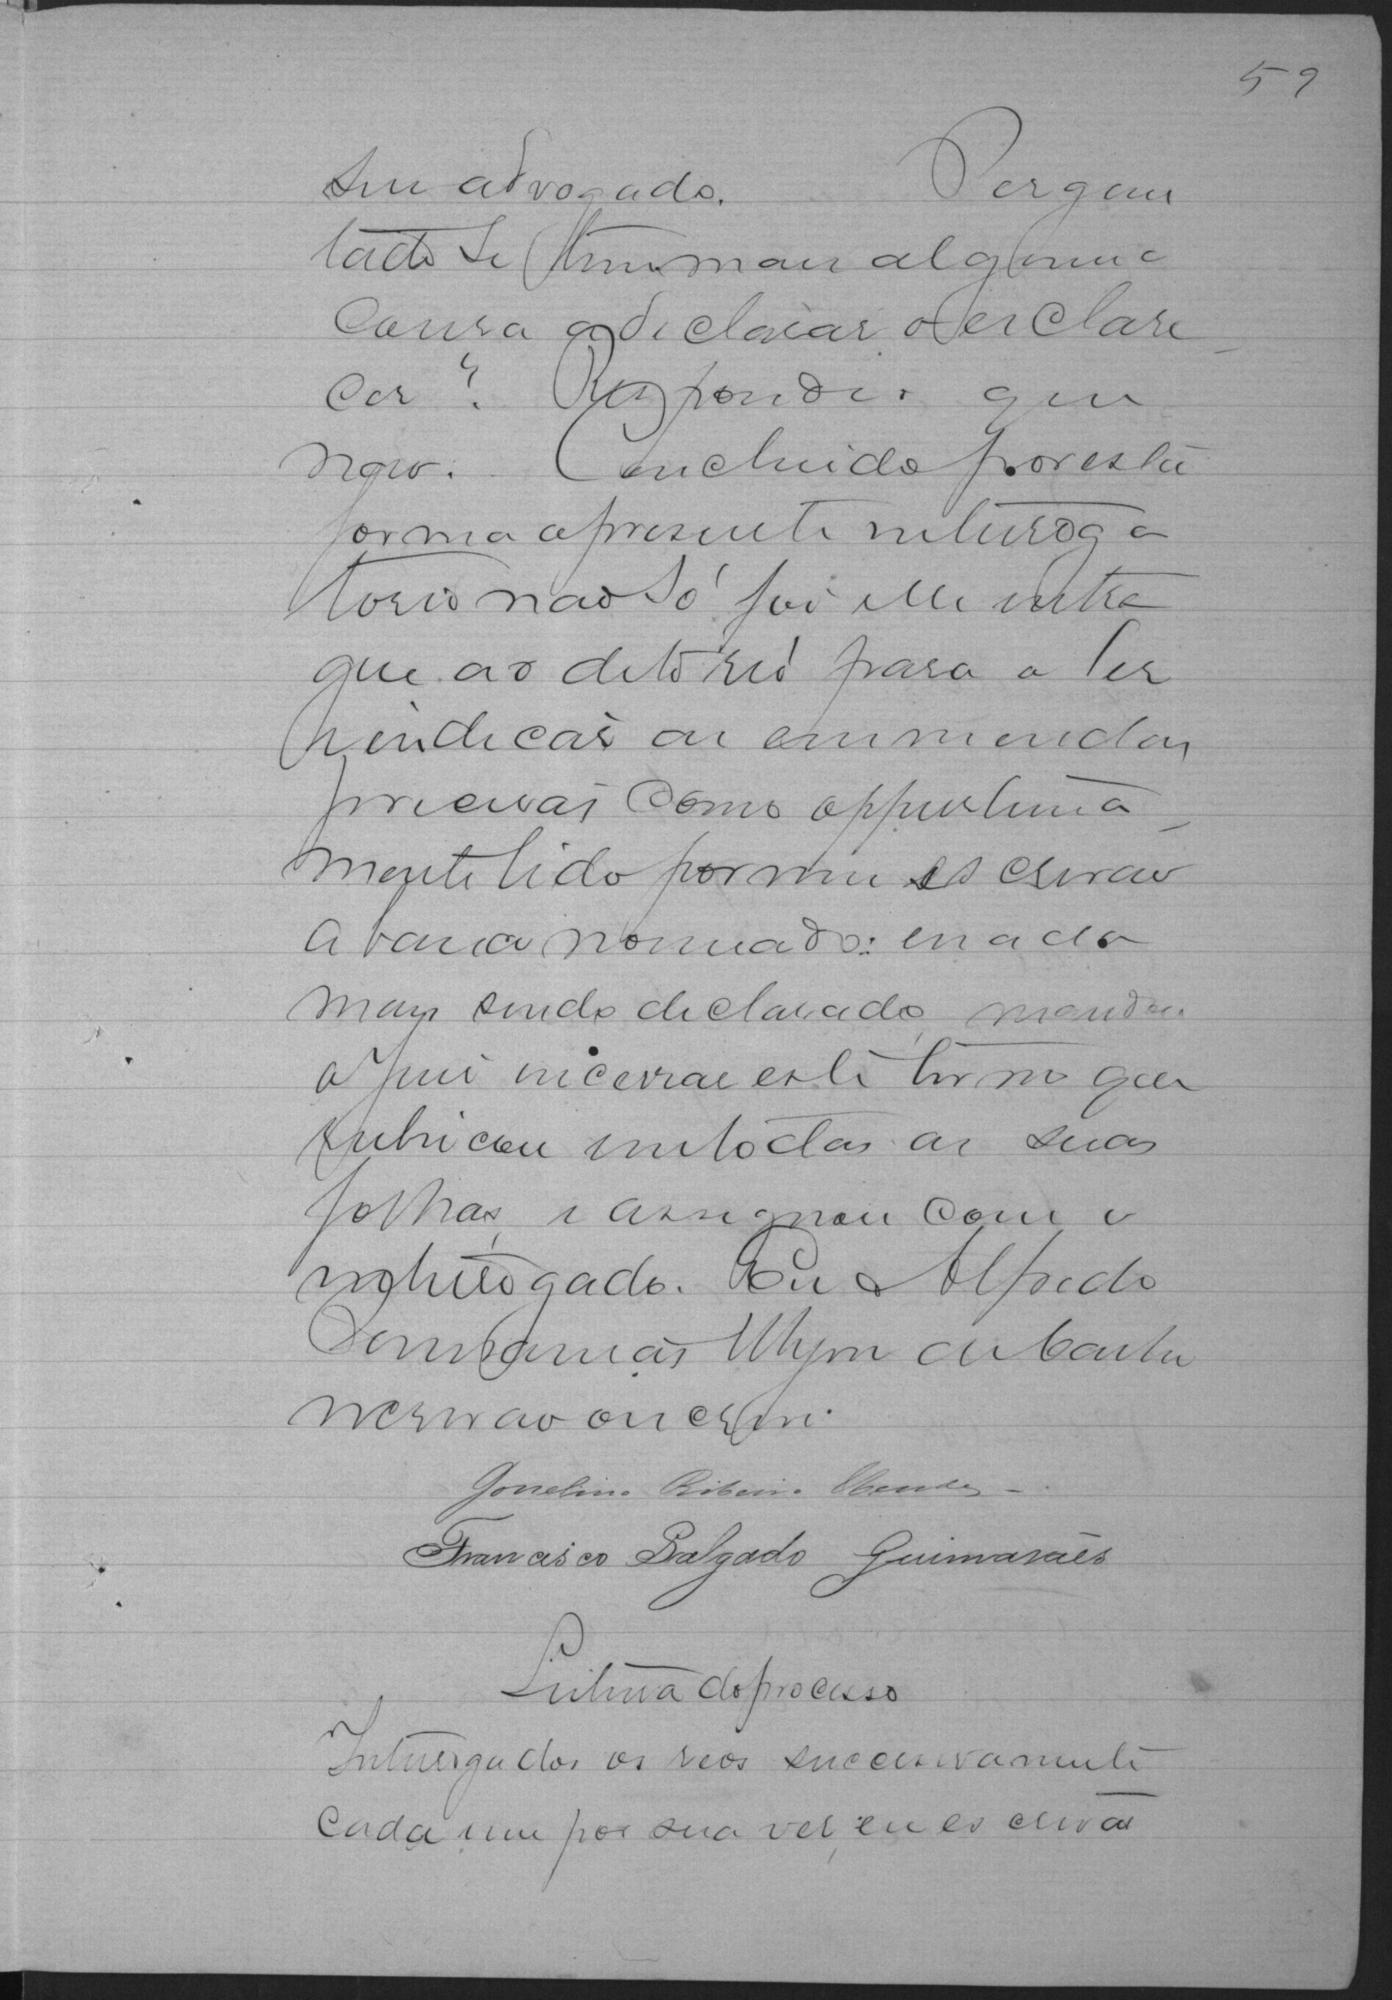 59
seu advogado. Pergun
tado se tinha mais alguma
cousa a declarar o esclare
cer? Respondeu que
não. Concluido por esta
forma o presente interroga
torio não só foi elle entre
gue ao dito réo para o ler
e indicar as emmendas
precisas como opportuna
mente lido por mim escrivão
abaixo nomeado: e nada
mais sendo declarado, mandou
o juiz encerrar este termo que
rubricou em todas as suas
folhas, e assignou com o
interrogado. Eu Alfredo
da Costa
escrivão o escrevi.
Ribeiro Mendes
Francisco Salgado Guimarães
Leitura do processo
Interrogados os réos successivamente
cada um por sua vez, eu escrivão